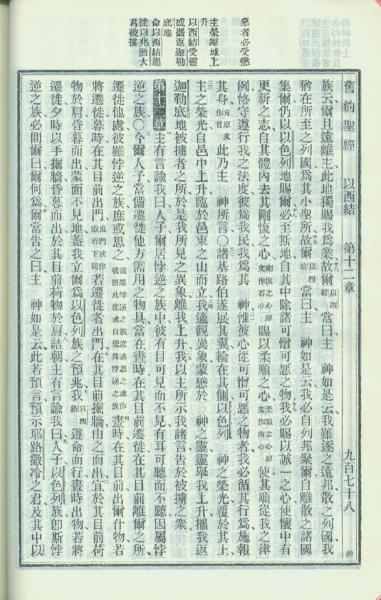 舊約聖經 以西結 第十二章 九百七十八
惡者必受懲
主榮離城上
升
以西結受靈
感攜返迦勒
底地
命以西結遷
徙以兆猶大
君被擄
族云爾且遠離主此地獨賜我為業故爾以西結當曰主 神如是云我雖逐之遠邦散之列國我
猶在所至之列國為其小聖所故爾以西結當曰主 神如是云我必自列邦聚爾自離散之諸國
集爾仍以以色列地賜爾必至斯地自其中除諸可憎可惡之物我必賜以誠一之心使懷中有
更新之志自其體內去其剛愎之心剛愎之心原文作石心賜以柔順之心柔順之心原文作肉心使其順從我之律
例恪守遵行我之法度彼為我民我為其 神惟彼心從可憎可惡之物者我必循其行為施報
其身身原文作首此乃主 神所言○諸基路伯遂展其翼輪在其側以色列 神之榮光覆於其上
主之榮光自邑中上升臨於邑東之山而立我遠觀異象蒙感於 神之靈靈舉我上升攜我返
迦勒底地被擄者之所於是我所見之異象離我上升我以主所示我諸言告於被擄之衆
第十二章主有言諭我曰人子爾居悖逆之族中彼有目可見而不見有耳可聽而不聽因屬悖
逆之族○今爾人子當備遷徙他方需用之物具當在晝時在其目前遷徙在其目前離爾之所
遷徙他處彼雖悖逆之族庶或思之晝時在其目前出爾什物若
將遷徙暮時在其目前出門若遷徙者出門在其目前掘牆由之而出宜於其目前荷
物於肩昏暮而出蒙面不見地蓋我立爾為以色列族之預兆我以西結遵命而行晝時出物若將
遷徙夕時以手掘牆昏暮而出於其目前荷物於肩詰朝主有言諭我曰人子以色列族即斯悖
逆之族必問爾曰爾何為爾當告之曰主 神如是云此若預言預示耶路撒冷之君及其中以